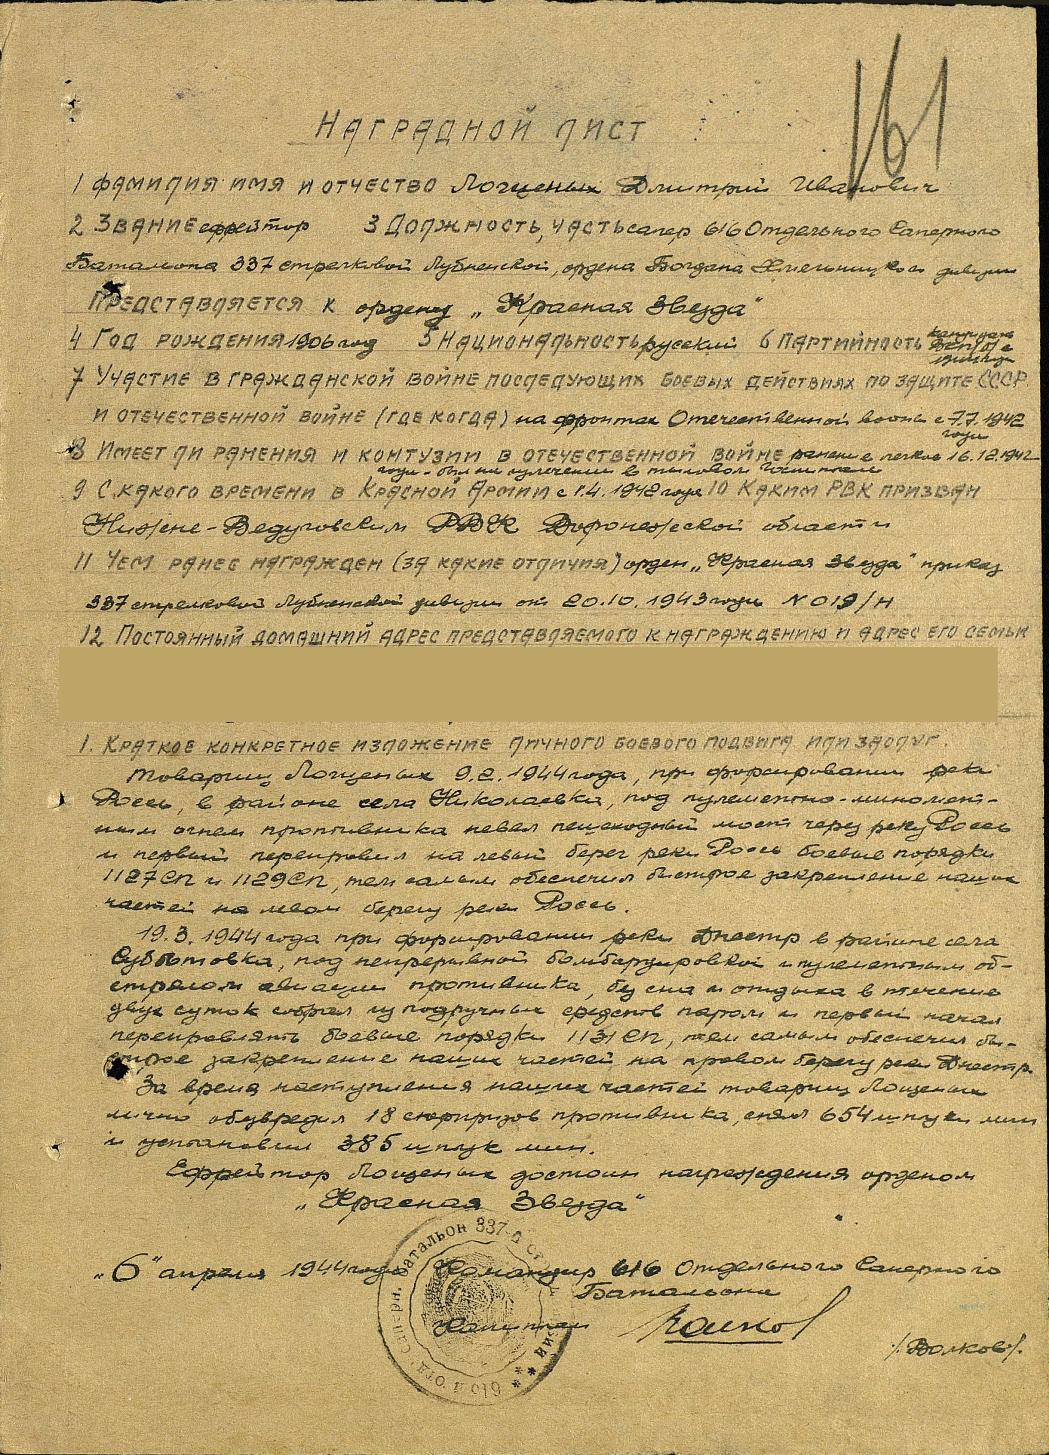 161
НАГРАДНОЙ ЛИСТ
1 ФАМИЛИЯ ИМЯ И ОТЧЕСТВО Лощеных Дмитрий Иванович
2 ЗВАНИЕ ефрейтор 3 ДОЛЖНОСТЬ, ЧАСТЬ сапер 616 Отдельного Саперного
Батальона 337 стрелковой Лубненской, ордена Богдана Хмельницкого дивизии
ПРЕДСТАВЛЯЕТСЯ К ордену „Красная Звезда"
4 ГОД РОЖДЕНИЯ 1906 год 5 НАЦИОНАЛЬНОСТЬ русский 6 ПАРТИЙНОСТЬ кандидат
7 УЧАСТИЕ В ГРАЖДАНСКОЙ ВОЙНЕ ПОСЛЕДУЮЩИХ БОЕВЫХ ДЕЙСТВИЯХ ПО ЗАЩИТЕ СССР
И ОТЕЧЕСТВЕННОЙ ВОЙНЕ (ГДЕ КОГДА) на фронтах Отечественной войны с 7.7.1942
года
8 ИМЕЕТ ЛИ РАНЕНИЯ И КОНТУЗИИ В ОТЕЧЕСТВЕННОЙ ВОЙНЕ ранение легкое 16.12.1942
года - был на излечении в тыловом госпитале
9 С КАКОГО ВРЕМЕНИ В КРАСНОЙ АРМИИ с 1.4.1942 года 10 КАКИМ РВК ПРИЗВАН
Нижне-Ведуговским РВК Воронежской области
11 ЧЕМ РАНЕЕ НАГРАЖДЕН (ЗА КАКИЕ ОТЛИЧИЯ) орден „Красная Звезда" приказ
337 стрелковой Лубненской дивизии от 20.10.1943 года N 019/н
12 ПОСТОЯННЫЙ ДОМАШНИЙ АДРЕС ПРЕДСТАВЛЯЕМОГО К НАГРАЖДЕНИЮ И АДРЕС ЕГО СЕМЬИ
1. КРАТКОЕ КОНКРЕТНОЕ ИЗЛОЖЕНИЕ ЛИЧНОГО БОЕВОГО ПОДВИГА ИЛИ ЗАСЛУГ.
Товарищ Лощеных 9.2.1944 года, при форсировании реки
Россь, в районе села Николаевка, под пулеметно-миномет-
ным огнем противника навел пешеходный мост через реку Россь
и первый переправил на левый берег реки Россь боевые порядки
1127 СП и 1129 СП, тем самым обеспечил быстрое закрепление наших
частей на левом берегу реки Россь.
19.3.1944 года при форсировании реки Днестр в районе села
Субботовка, под непрерывной бомбардировкой и пулеметным об-
стрелом авиации противника, без сна и отдыха в течение
двух суток собрал из подручных средств паром и первый начал
переправлять боевые порядки 1131 СП, тем самым обеспечил бы-
строе закрепление наших частей на правом берегу реки Днестр.
За время наступления наших частей товарищ Лощеных
лично обезвредил 18 сюрпризов противника, снял 654 штук мин
и установил 385 штук мин.
Ефрейтор Лощеных достоин награждения орденом
„Красная Звезда"
„6" апреля 1944 года Командир 616 Отдельного Саперного
Батальона
Капитан Волков /Волков/.
616 отд. саперн. батальон 337-й